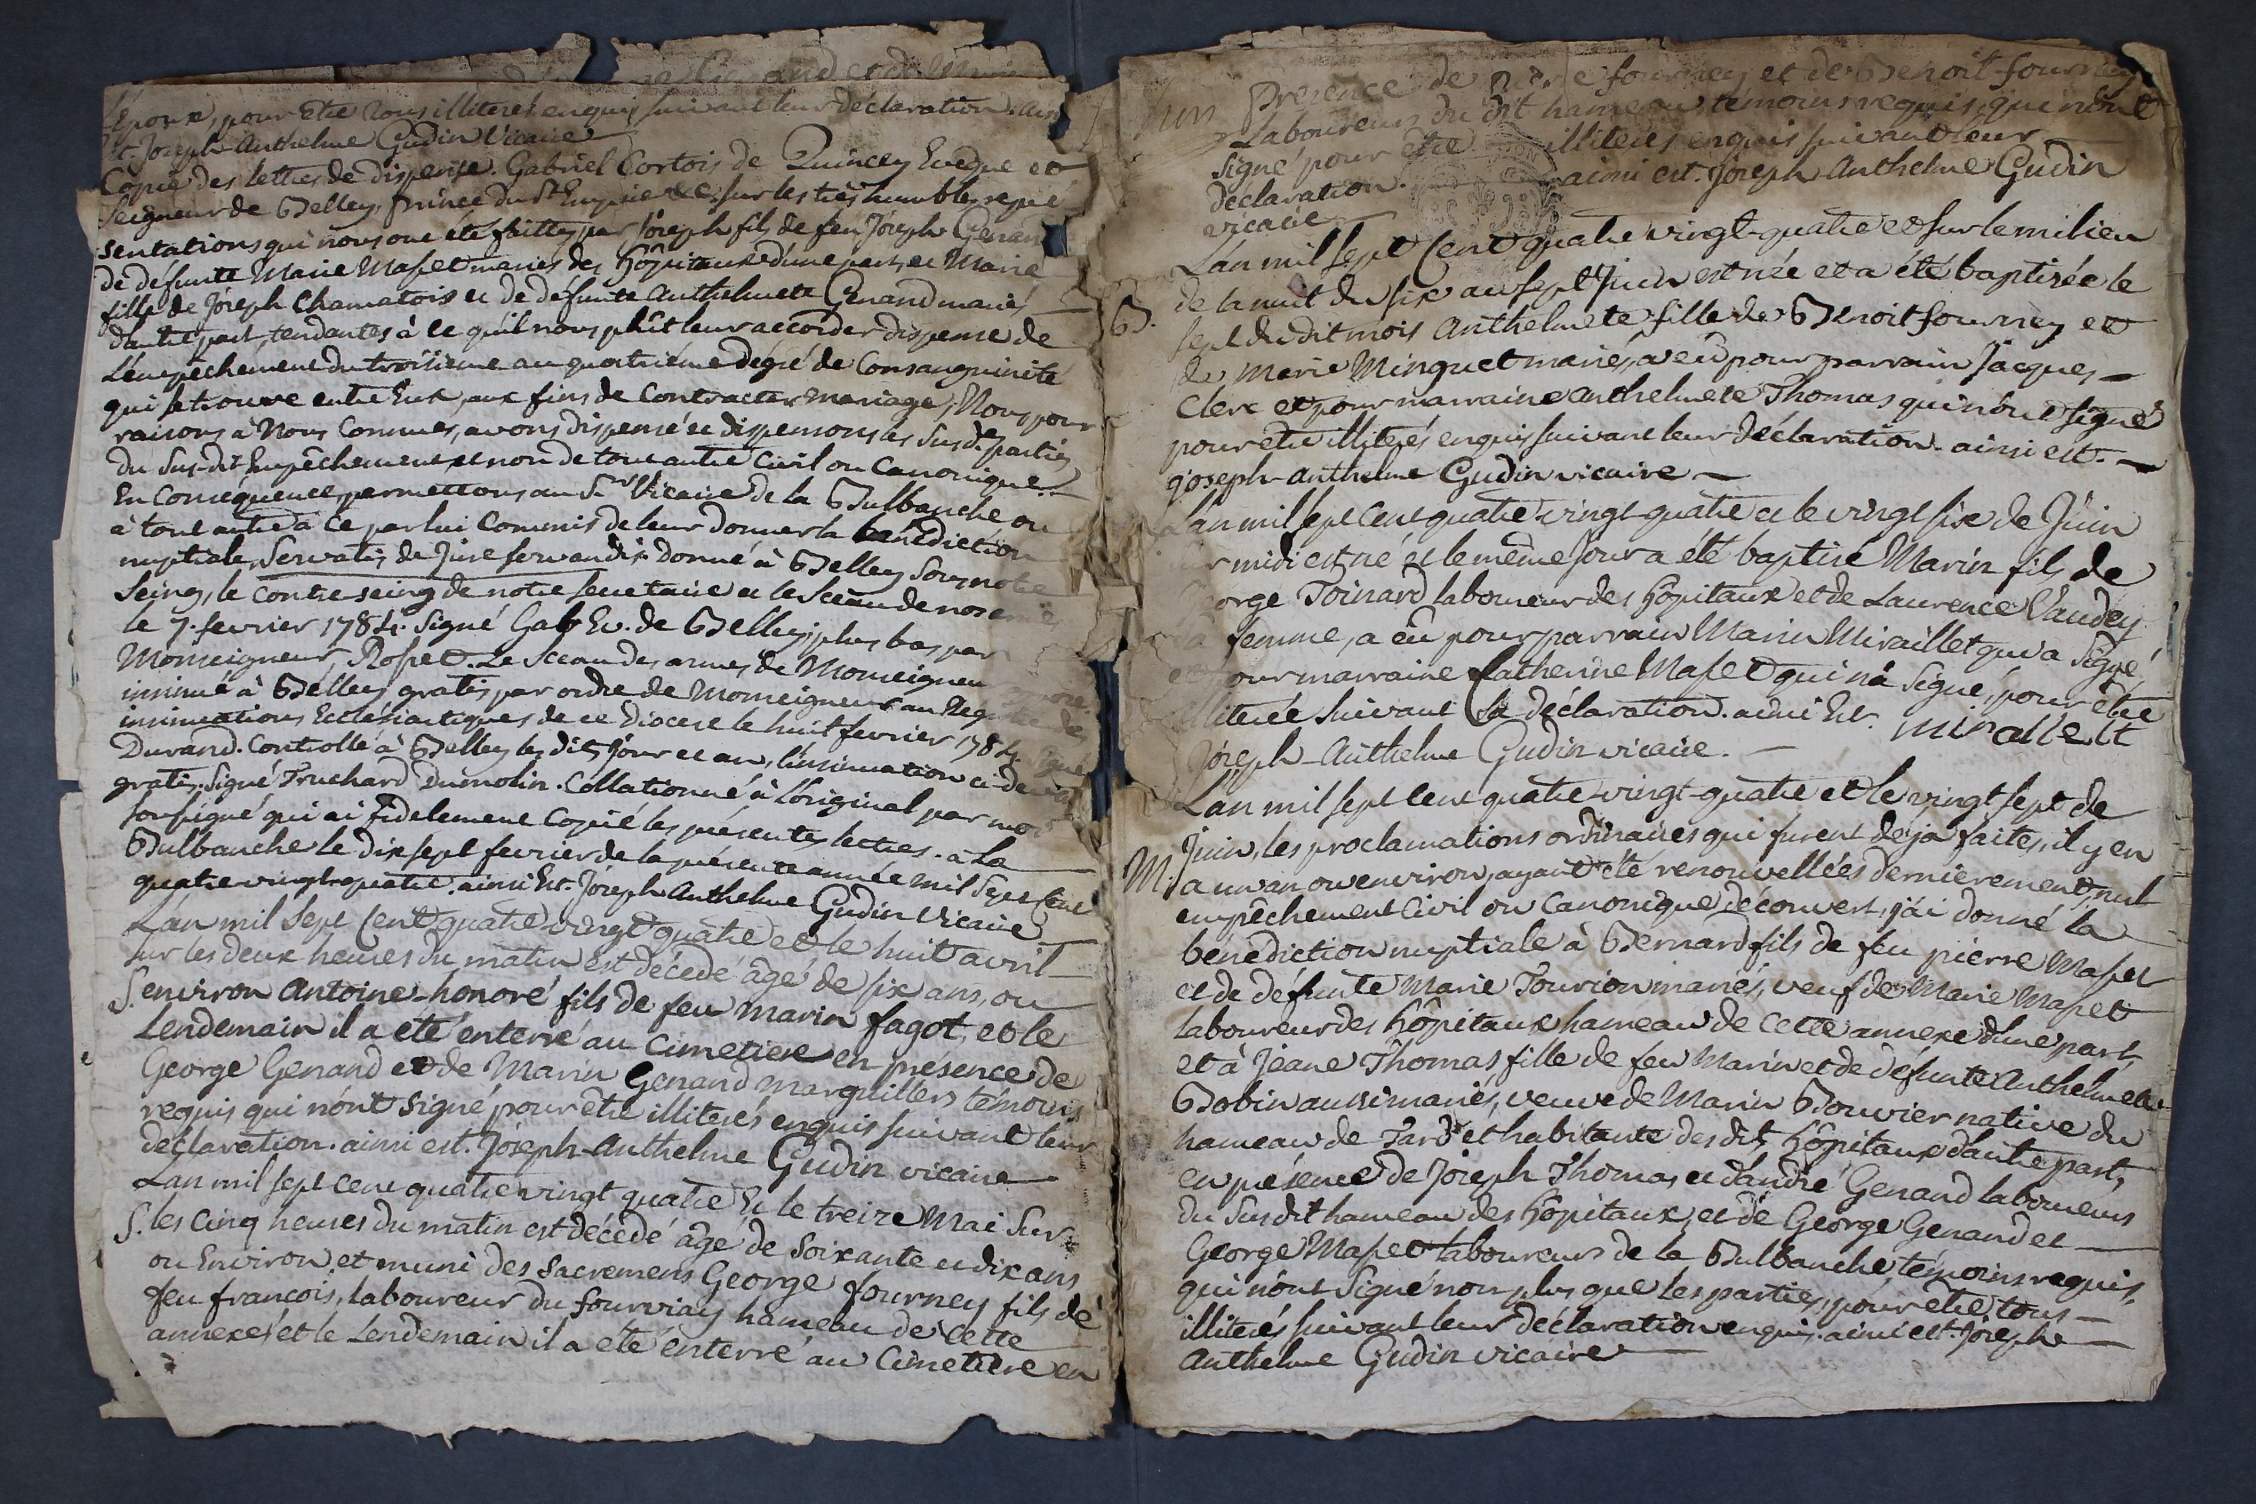 L'Epoux, pour être tous illiterés enquis suivant leur déclaration. ainsi
est. Joseph-Anthelme Gudin Vicaire
Copie des lettres de dispense. Gabriel Cortois de Quincey Evêque et
Seigneur de Belley, Prince du St Empire &c. sur les très humbles repré
sentations qui nous ont été faittes par Joseph fils de feu Joseph Genand
de défunte Marie Maset mariés des Hôpitaux d'une part, et Marie
fille de Joseph Chamatois et de défunte Anthelmete Genand mariés
d'autre part, tendantes à ce qu'il nous plût leur accorder dispense de
L'empêchement du troisieme au quatriéme dégré de Consanguinité
qui se trouve entre Eux, aux fins de Contracter mariage; Nous pour
raisons à Nous Connues, avons dispensé et dispensons les Susdes parties
du Sus-dit Empêchement et non de tout autre Civil ou Canonique.
En Conséquence, permettons au Sr Vicaire de la Bulbanche ou
à tout autre à ce par lui Commis de leur donner la bénédiction
nuptiale, Servatis de Jure servandis. Donné à Belley Sous notre
Seing, le Contre-seing de notre secretaire et le Sceau de nos
le 7. fevrier 1784. Signé Gab Ev. de Belley; plus bas, par
Monseigneur, Roset. Le Sceau des armes de Monseigneur
insinué à Belley gratis, par ordre de Monseigneur au Reg de
insinuations Ecclésiastiques de ce Diocese le huit fevrier 1784. Signé
Durand. Controllé à Belley les dits jour et an, l'insinuation ci-de
gratis. Signé Truchard Dumolin. Collationné à L'original par moi
soussigné qui ai fidelement Copié les présentes lettres. à La
Bulbanche le dix sept fevrier de la présente année mil Sept Cent
quatre vingt-quatre. ainsi Est. Joseph Anthelme Gudin Vicaire
L'an mil Sept Cent quatre vingt quatre et le huit avril
sur les deux heures du matin Est décedé âgé de six ans, ou
S. environ Antoine-honoré fils de feu Marin fagot, et le
Lendemain il a eté enterré au Cimetiere en présence de
George Genand et de Marin Genand marguilliers témoins
requis qui n'ont signé, pour être illiterés enquis suivant leur
déclaration. ainsi est. Joseph-Anthelme Gudin vicaire
L'an mil sept cent quatre vingt quatre Et le treize Mai Sur
S. les Cinq heures du matin est décedé âgé de Soixante et dix ans
ou Environ, et muni des Sacremens George fourney fils de
feu francois, laboureur du fourviay hameau de Cette
annexe, et le Lendemain il a eté enterré au Cimetiere en
présence de fourney et de Benoit fourney
Laboureurs du dit hameau, témoins requis, qui n'ont
signé pour être illiterés enquis suivant leur
déclaration. ainsi est. Joseph Anthelme Gudin
vicaire
L'an mil sept Cent quatre vingt-quatre et sur le milieu
de la nuit du six au sept Juin est née et a été baptisée le
B. sept du dit mois Anthelmete fille de Benoit fourney et
de Marie Minguet mariés, a eû pour parrain Jacques
Clerc et pour marraine Anthelmete Thomas qui n'ont signé
pour être illiterés enquis suivant leur déclaration. ainsi est.
Joseph-Anthelme Gudin vicaire
L'an mil sept Cent quatre-vingt-quatre et le vingt six de Juin
sur midi est né et le même Jour a été baptisé Marin fils de
George Toinard laboureur des Hôpitaux et de Laurence Vaudey
sa femme, a eû pour parrain Marin Miraillet qui a Signé,
et pour marraine Catherine Maset qui n'a Signé, pour être
illiterée suivant sa déclaration. ainsi Est. mirallett
Joseph-Anthelme Gudin vicaire.
L'an mil sept cent quatre-vingt-quatre et le vingt sept de
Juin, les proclamations ordinaires qui furent deja faites, il y en
M. a un an ou environ, ayant été renouvellées dernierement, nul
empêchement Civil ou Canonique découvert, j'ai donné la
bénédiction nuptiale à Bernard fils de feu pierre Maset
et de défunte Marie Tourion mariés, veuf de Marie Maset
laboureur des Hôpitaux hameau de cette annexe d'une part,
et à Jeane Thomas fille de feu Marin et de défunte Anthelmete
Bobin aussi mariés, veuve de Marin Bouvier native du
hameau de et habitante des dits Hôpitaux d'autre part,
en présence de Joseph Thomas et d'andré Genand laboureurs
du Susdit hameau des Hôpitaux, et de George Genand et
George Maset laboureurs de la Bulbanche, témoins requis,
qui n'ont Signé non plus que les parties, pour être tous
illiterés suivant leur déclaration enquis. ainsi est. Joseph
Anthelme Gudin vicaire